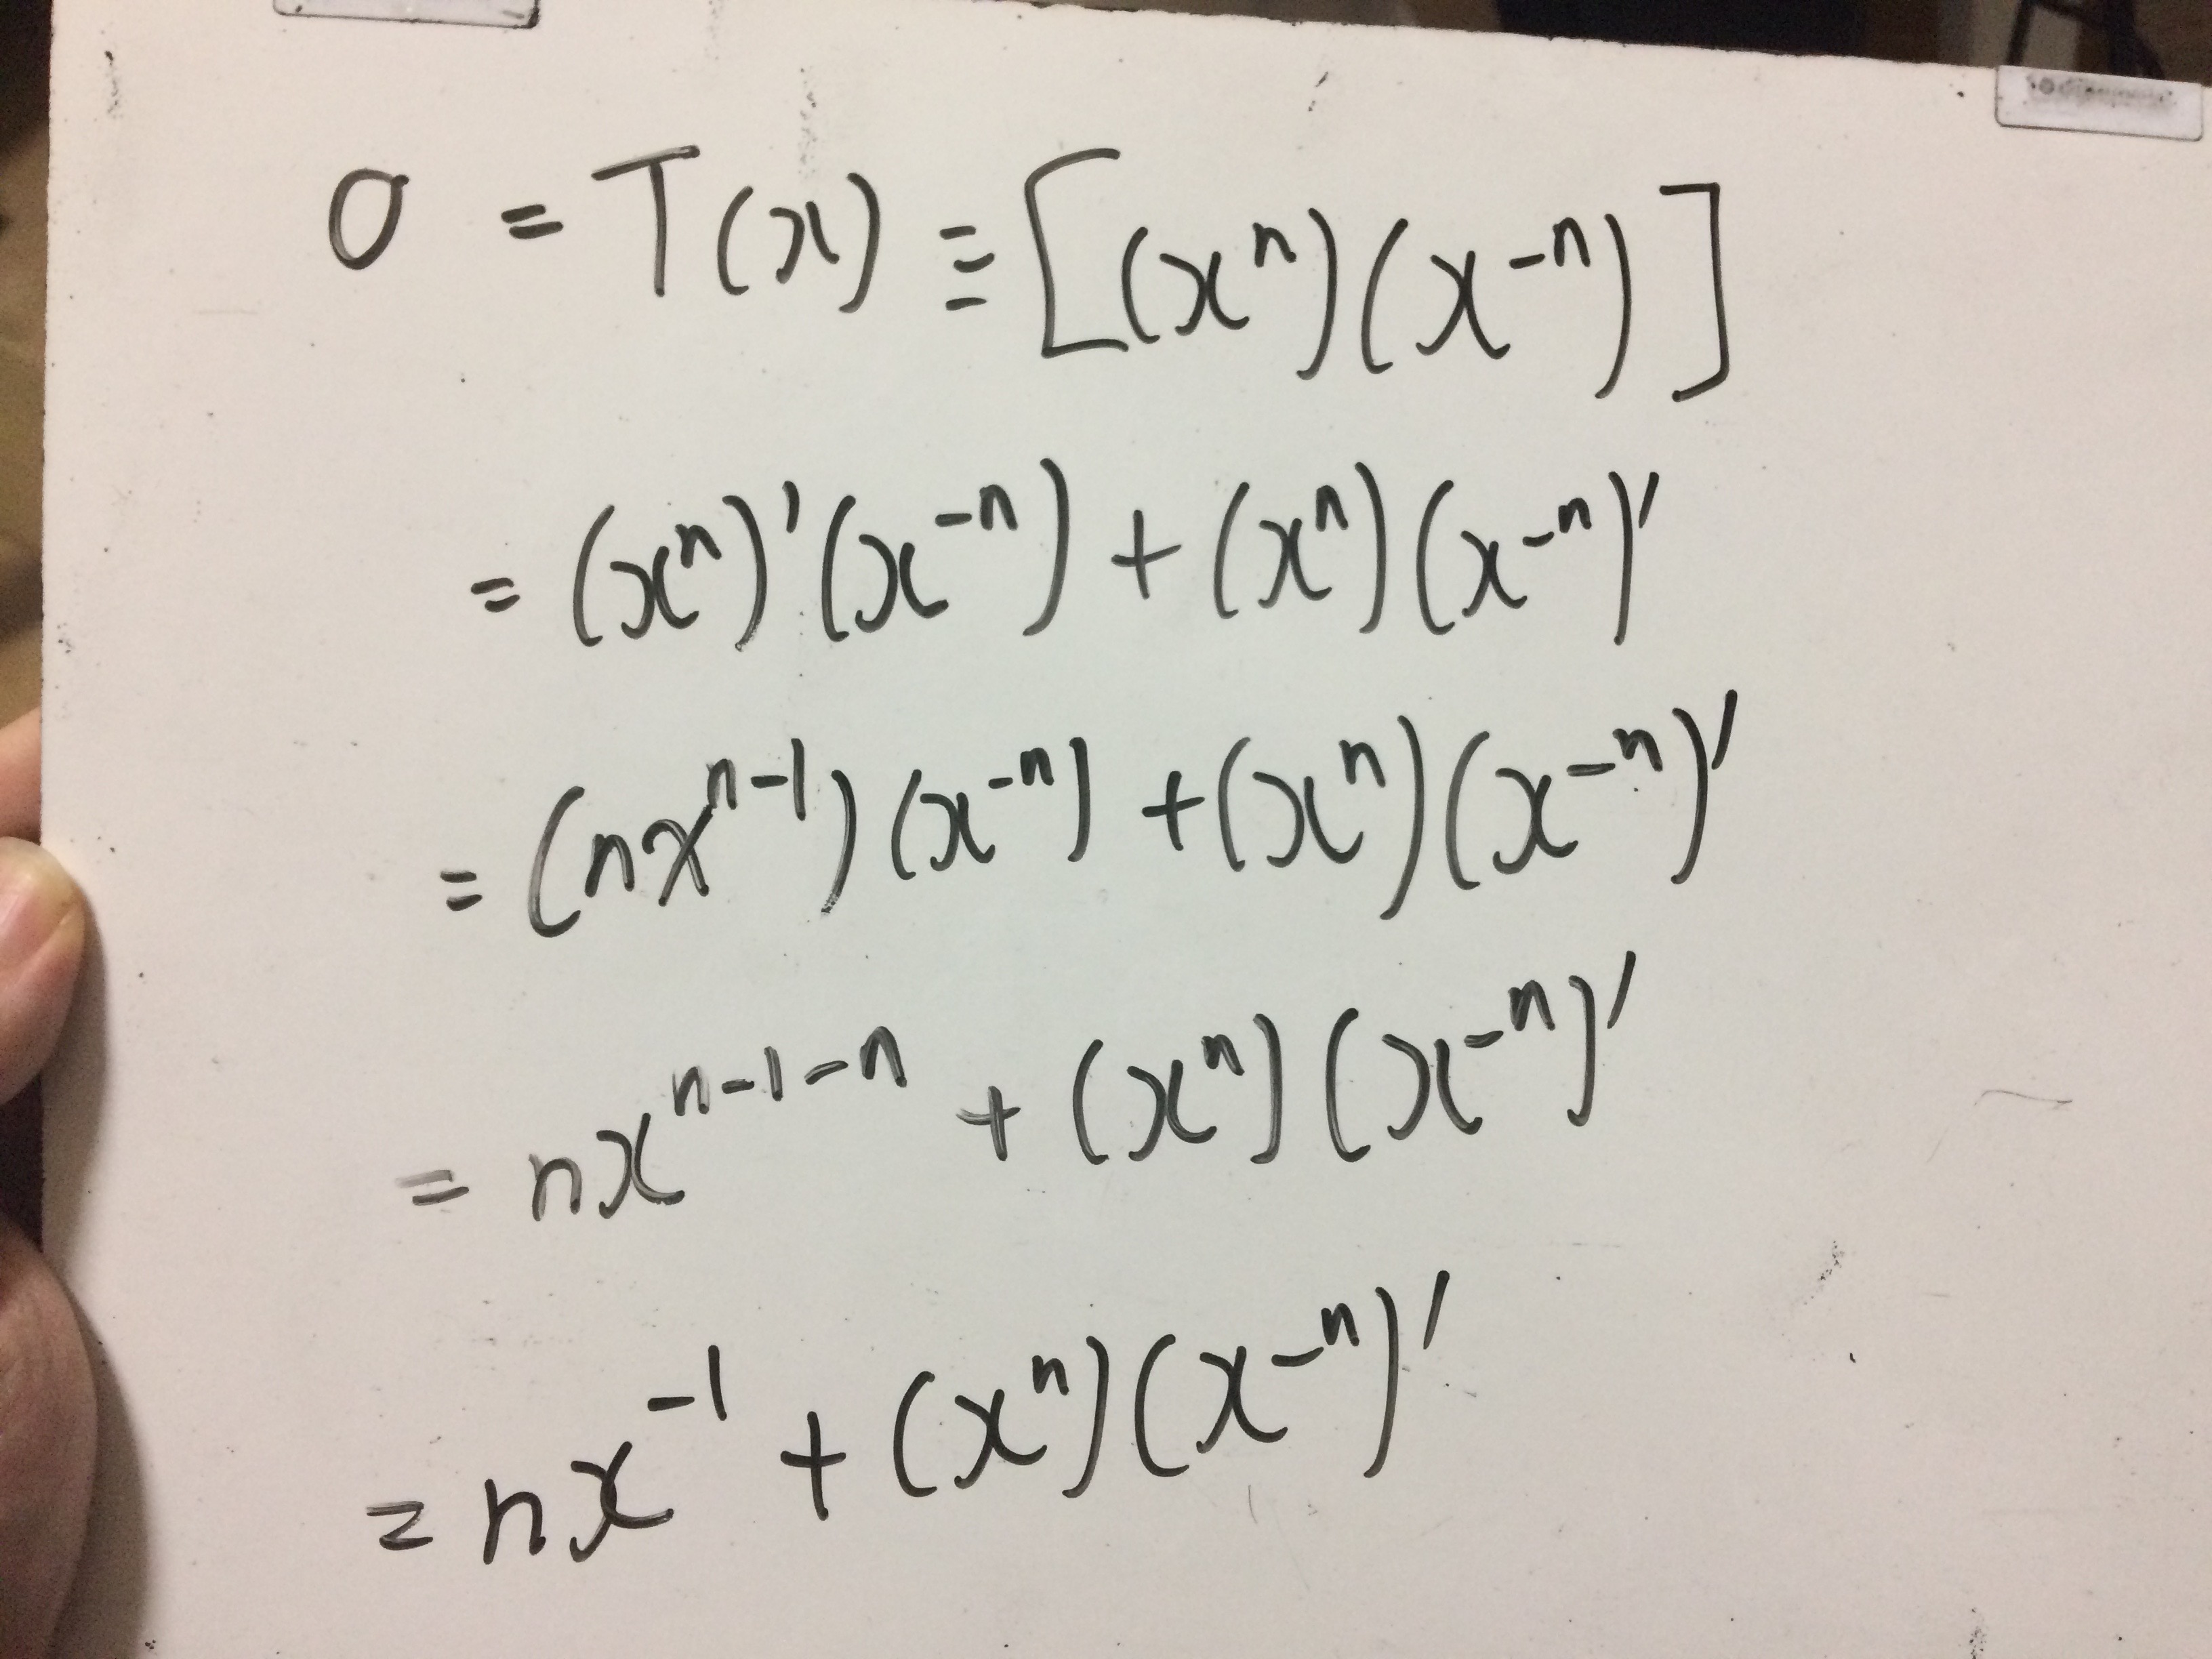 0 = T(x) = [(xⁿ)(x⁻ⁿ)]
= (xⁿ)'(x⁻ⁿ) + (xⁿ)(x⁻ⁿ)'
= (nxⁿ⁻¹)(x⁻ⁿ) + (xⁿ)(x⁻ⁿ)'
= nxⁿ⁻¹⁻ⁿ + (xⁿ)(x⁻ⁿ)'
= nx⁻¹ + (xⁿ)(x⁻ⁿ)'